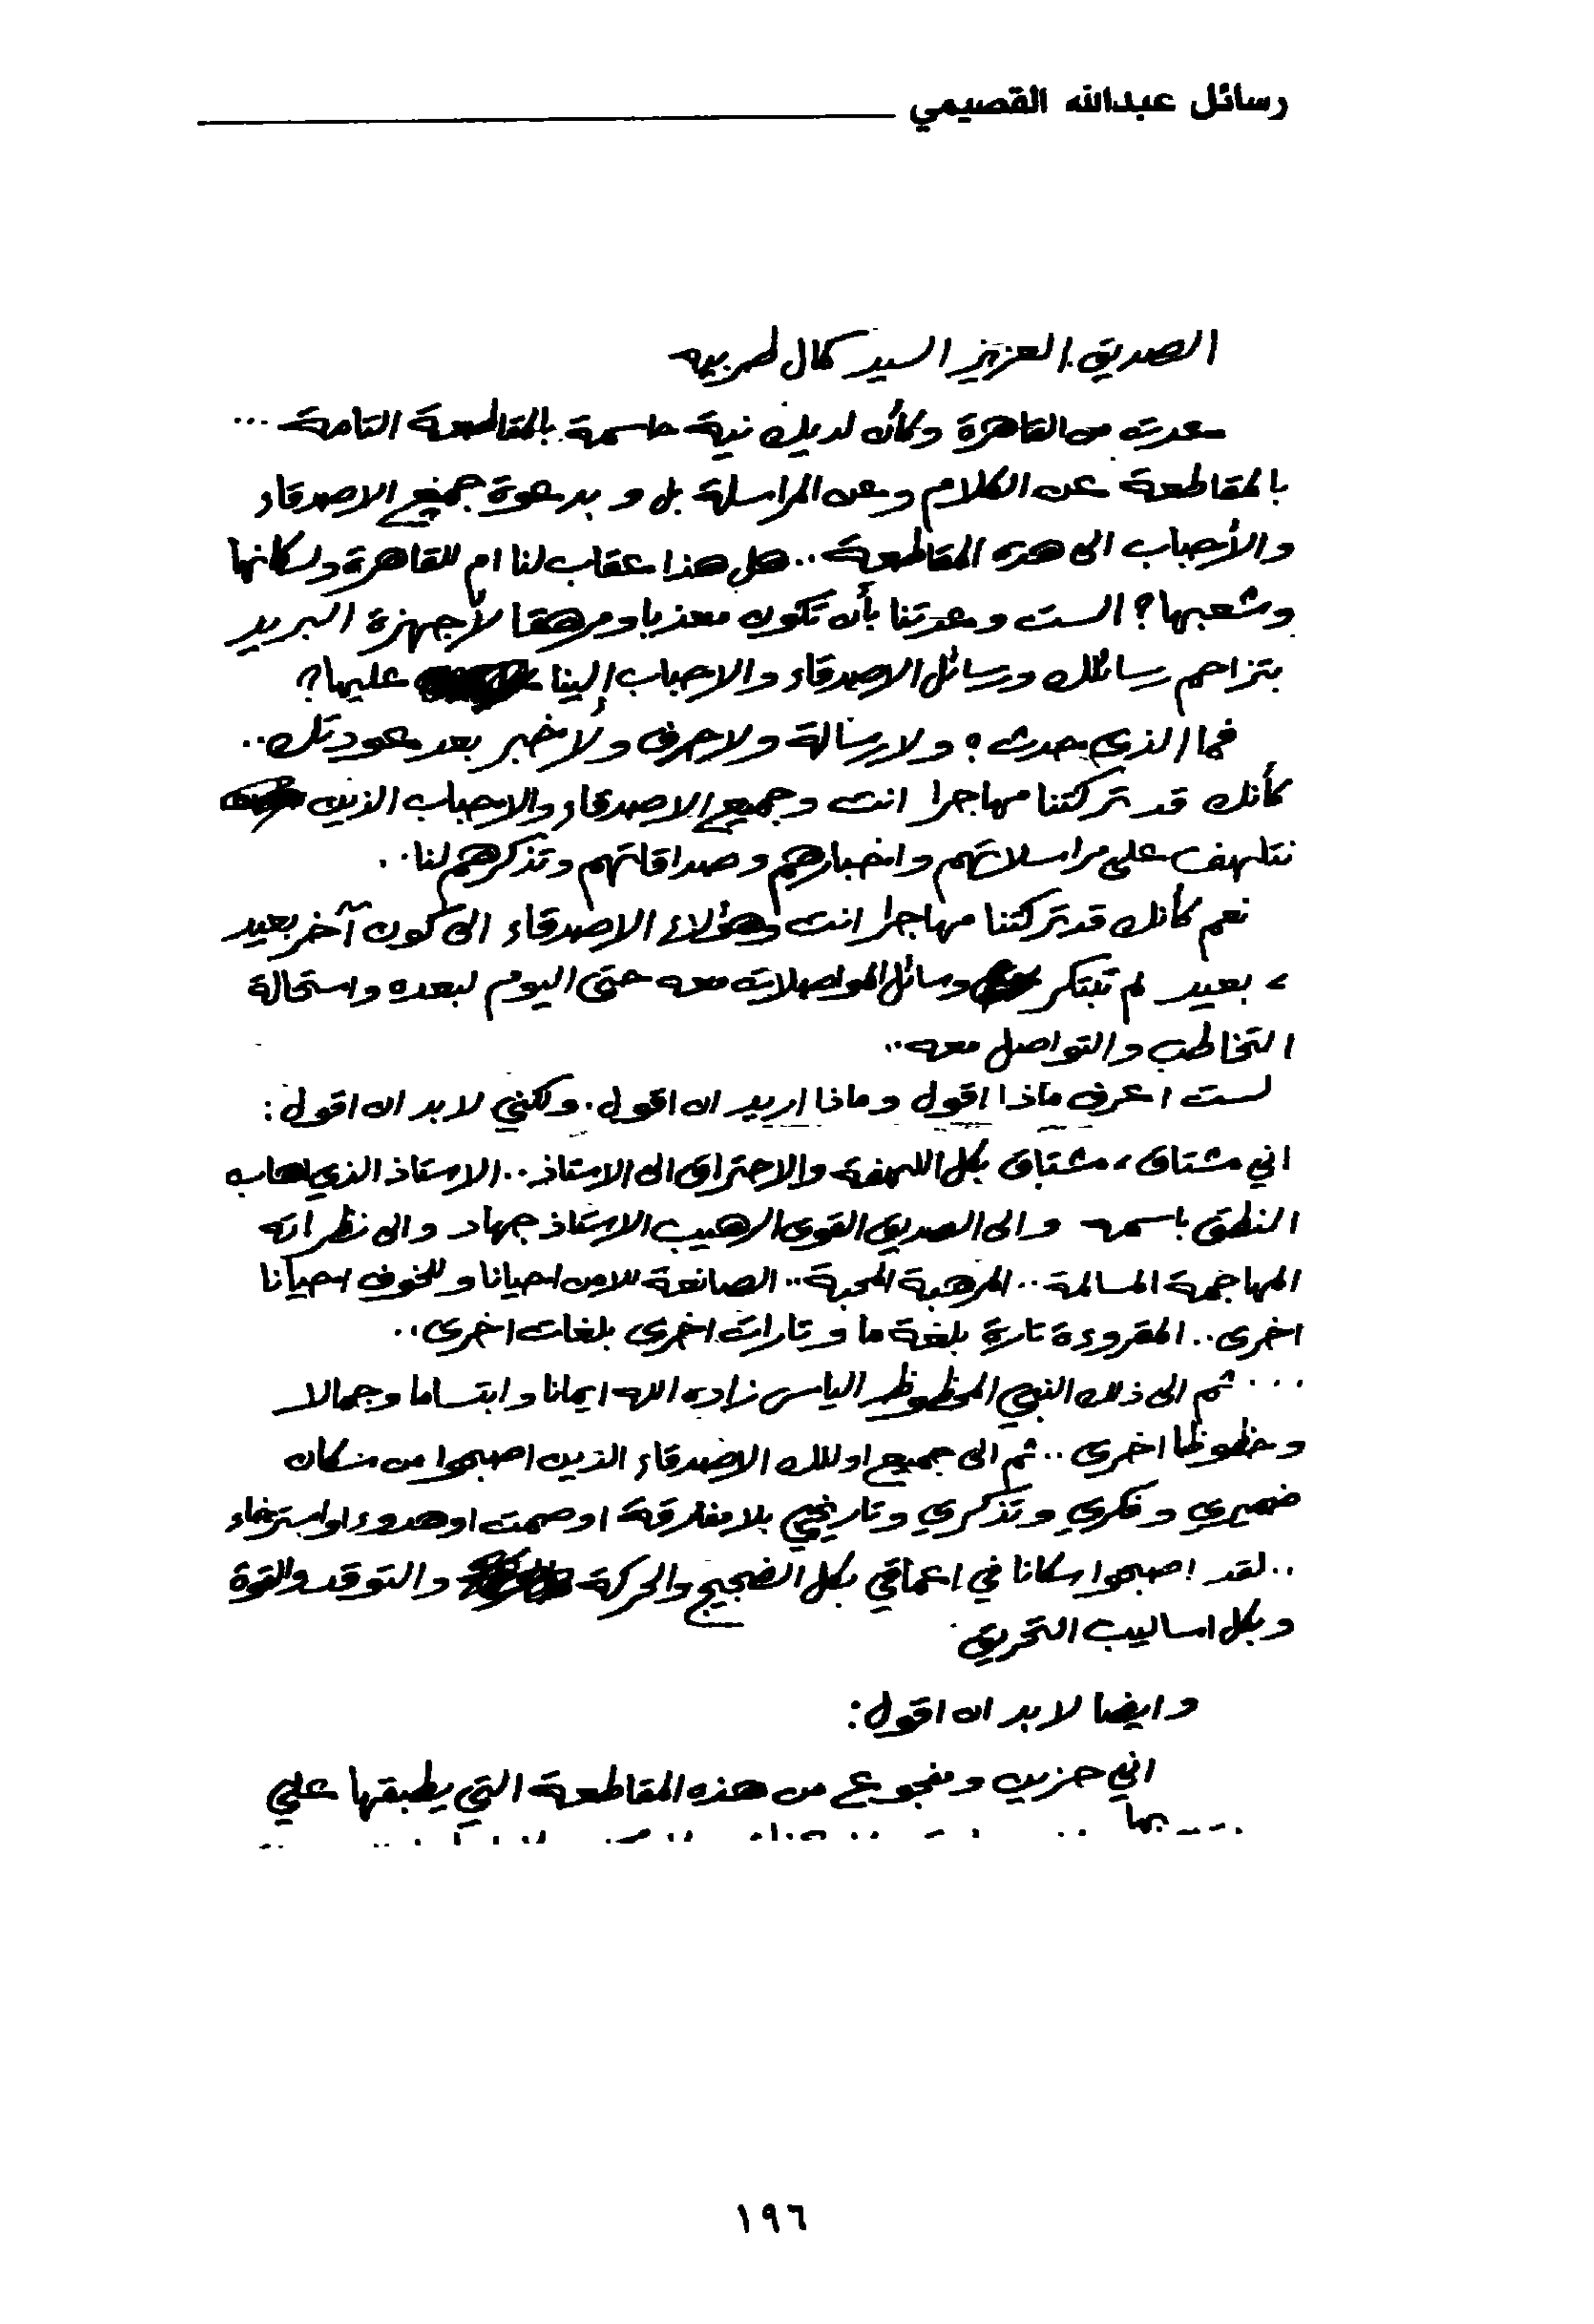 رسائل عبدالله القصيمي
الصديق العزيز السيد كمال طربيه
عدت من القاهرة وكأن لديك نية حاسمة بالمقاطعة التامة ...
بالمقاطعة عن الكلام وعن المراسلة بل و بدعوة جميع الاصدقاء
والأحباب الى هذه المقاطعة .. هل هذا عقاب لنا ام للقاهرة ولسكانها
وشعبها؟ الست وعدتنا بأن تكون معذبا ومرهقا لأجهزة البريد
بتزاحم رسائلك ورسائل الاصدقاء والاحباب إلينا عليها؟
فما الذي حدث؟ ولا رسالة ولا حرف ولا خبر بعد عودتك ..
كأنك قد تركتنا مهاجرا انت وجميع الاصدقاء والاحباب الذين
نتلهف على مراسلاتهم واخبارهم وصداقاتهم وتذكرهم لنا ..
نعم كأنك قد تركتنا مهاجرا انت وهؤلاء الاصدقاء الى كون آخر بعيد
، بعيد لم تبتكر وسائل المواصلات معه حتى اليوم لبعده واستحالة
التخاطب والتواصل معه ..
لست اعرف ماذا اقول وماذا اريد ان اقول. ولكني لا بد ان اقول:
اني مشتاق، مشتاق بكل اللهفة والاحتراق الى الاستاذ .. الاستاذ الذي اهاب
النطق باسمه والى الصديق القوي الرهيب الاستاذ جهاد والى نظراته
المهاجمة المسالمة .. المرهبة المحبة .. الصانعة للامن احيانا وللخوف احيانا
اخرى .. المقروءة تارة بلغة ما وتارات اخرى بلغات اخرى ..
... ثم الى ذلك النبي المحظوظ الياس زاده الله ايمانا وابتساما وجمالا
وحظوظا اخرى .. ثم الى جميع اولئك الاصدقاء الذين اصبحوا من سكان
ضميري وفكري وتذكري وتاريخي بلا مفارقة او صمت او هدوء او استرخاء
.. لقد اصبحوا سكانا في اعماقي بكل الضجيج والحركة والتوقد والقوة
وبكل اساليب التحريق
وايضا لا بد ان اقول:
اني حزين ومفجوع من هذه المقاطعة التي يطبقها علي
١٩٦